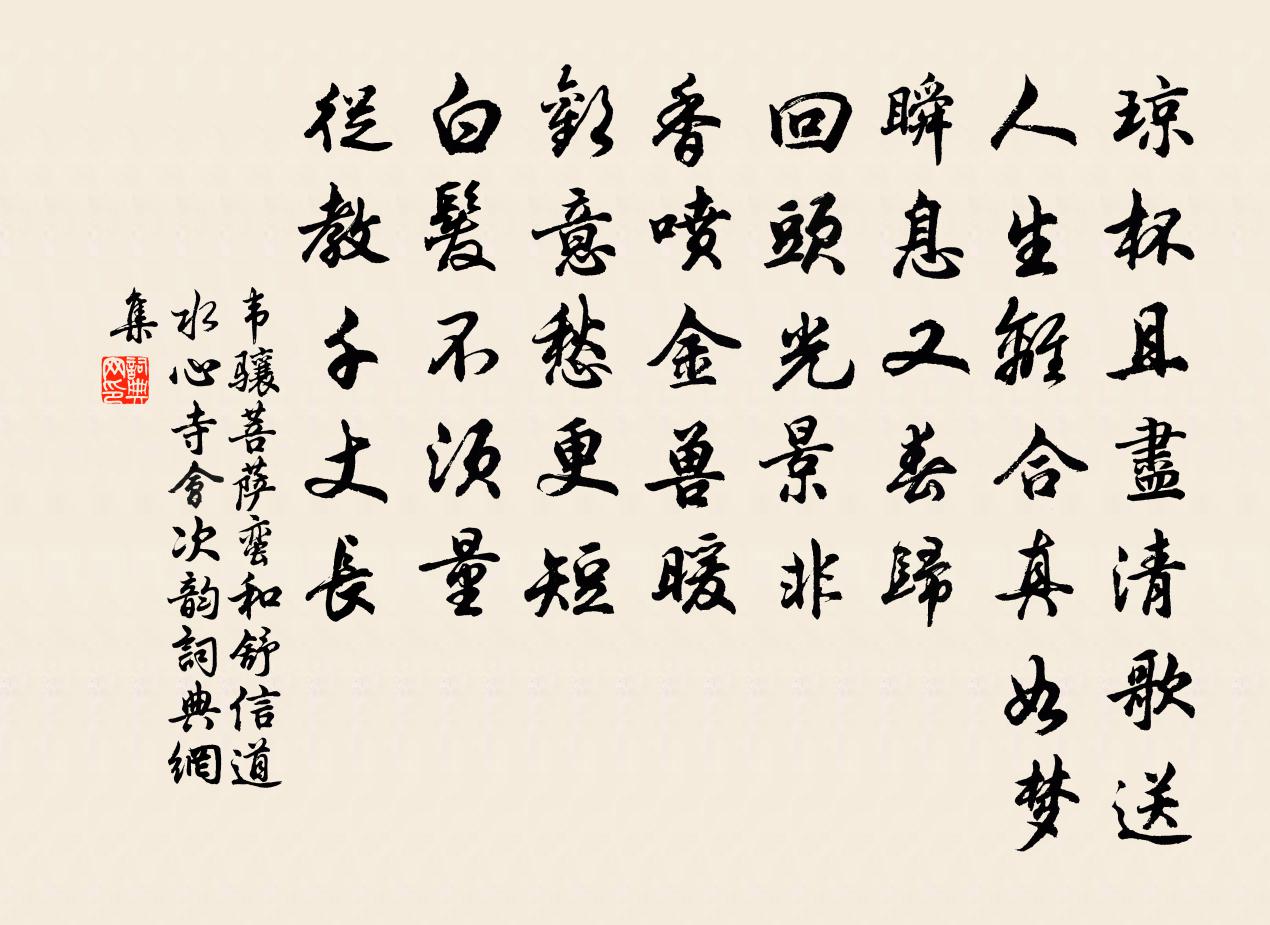 琼杯且盡清歌送
人生離合真如梦
瞬息又春歸
回頭光景非
香噴金兽暖
歡意愁更短
白髮不须量
從教千丈長
韦骧菩萨蛮和舒信道
水心寺會次韵詞典網
集
詞典
网印